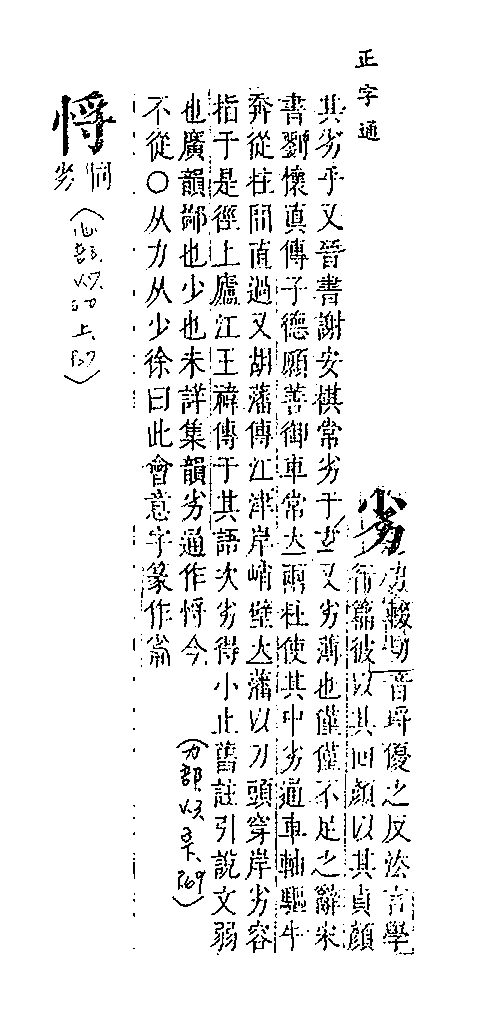 正字通
劣 力輟切音埒優之反法言學
行篇彼以其回顏以其貞顏
其劣乎又晉書謝安棋常劣于玄又劣薄也僅僅不足之辭宋
書劉懷真傳子德願善御車常立兩柱使其中劣通車軸驅牛
奔從柱間直過又胡藩傳江津岸峭壁立藩以刀頭穿岸劣容
指于是徑上廬江王褘傳于其語次劣得小止舊註引說文弱
也廣韻鄙也少也未詳集韻劣通作㝊今
不從○从力从少徐曰此會意字篆作
(力部, 
P.69)
同
劣
(心部,
上,
P.27)